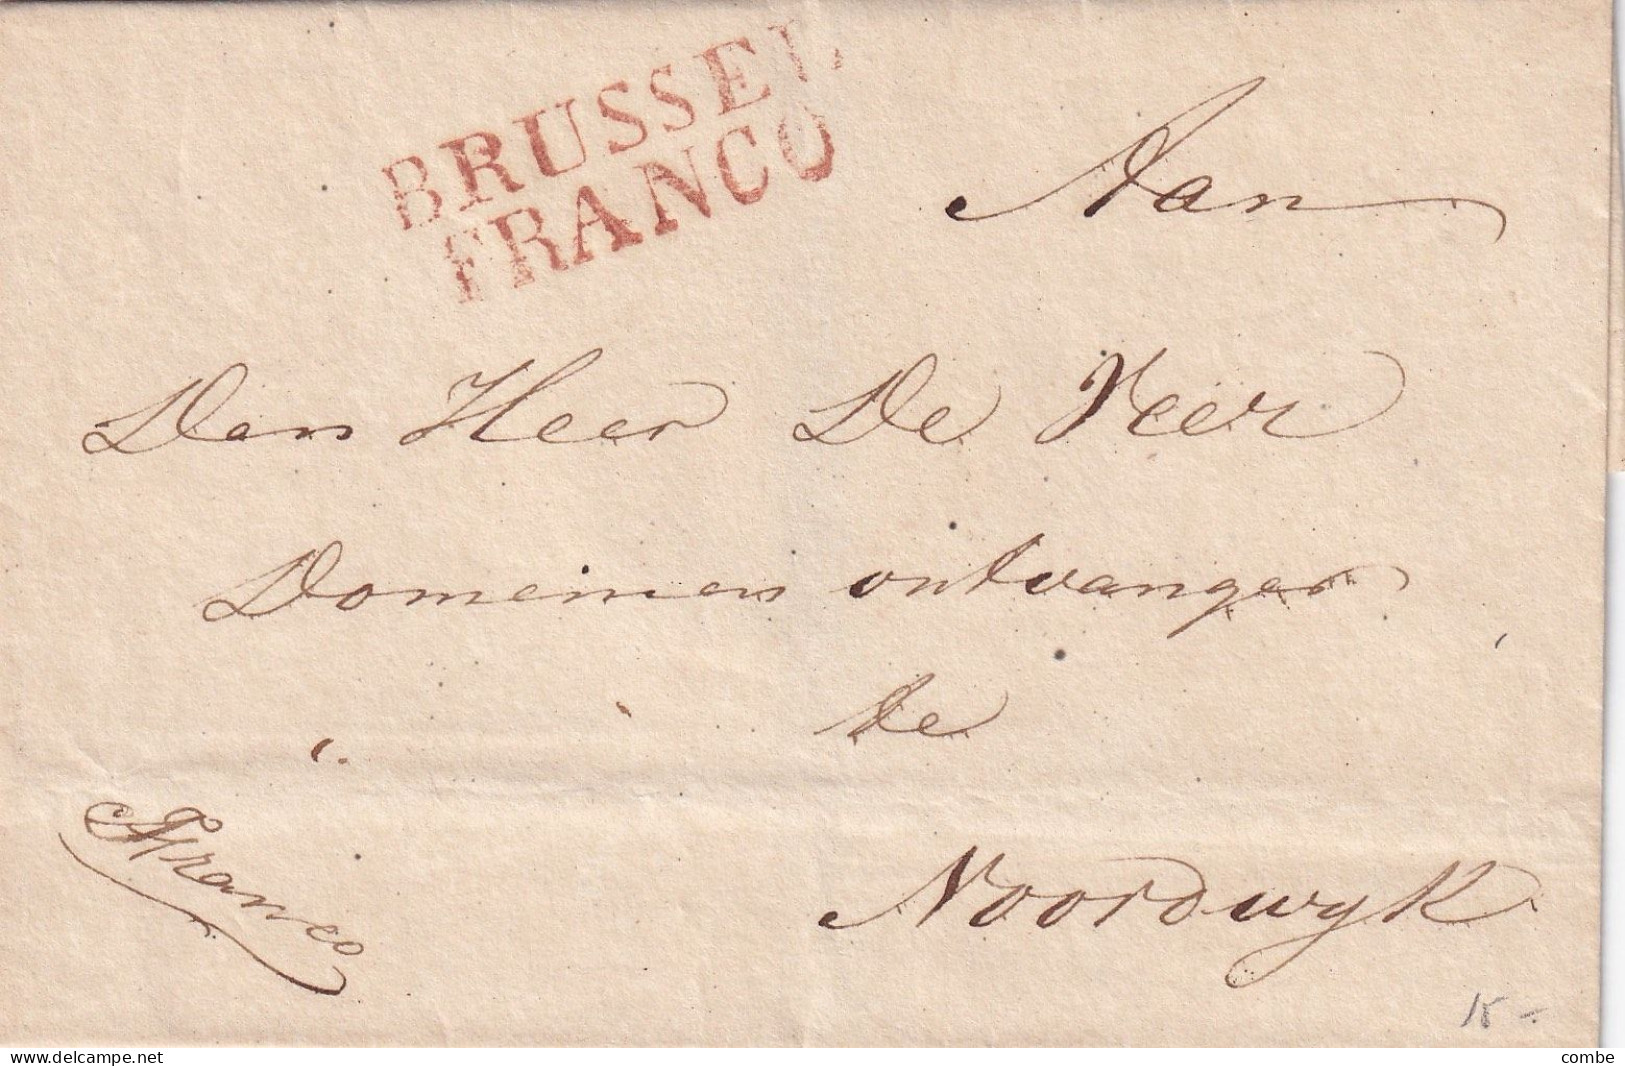 BRUSSEL
FRANCO
Aan
Den Heer De Veer
Domeinen ontvanger
te
Noordwyk
Franco
15 -
delcampe.net
combe